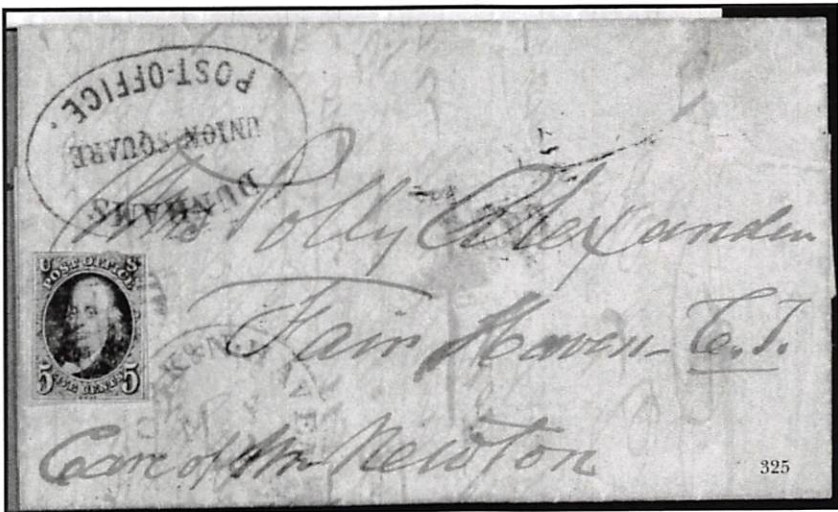 DUNHAMS
UNION SQUARE
POST-OFFICE.
Mrs Polly Alexander
Fair Haven C.T.
Care of Mr Newton
U S
POST OFFICE
5 FIVE CENTS 5
HAVEN
325